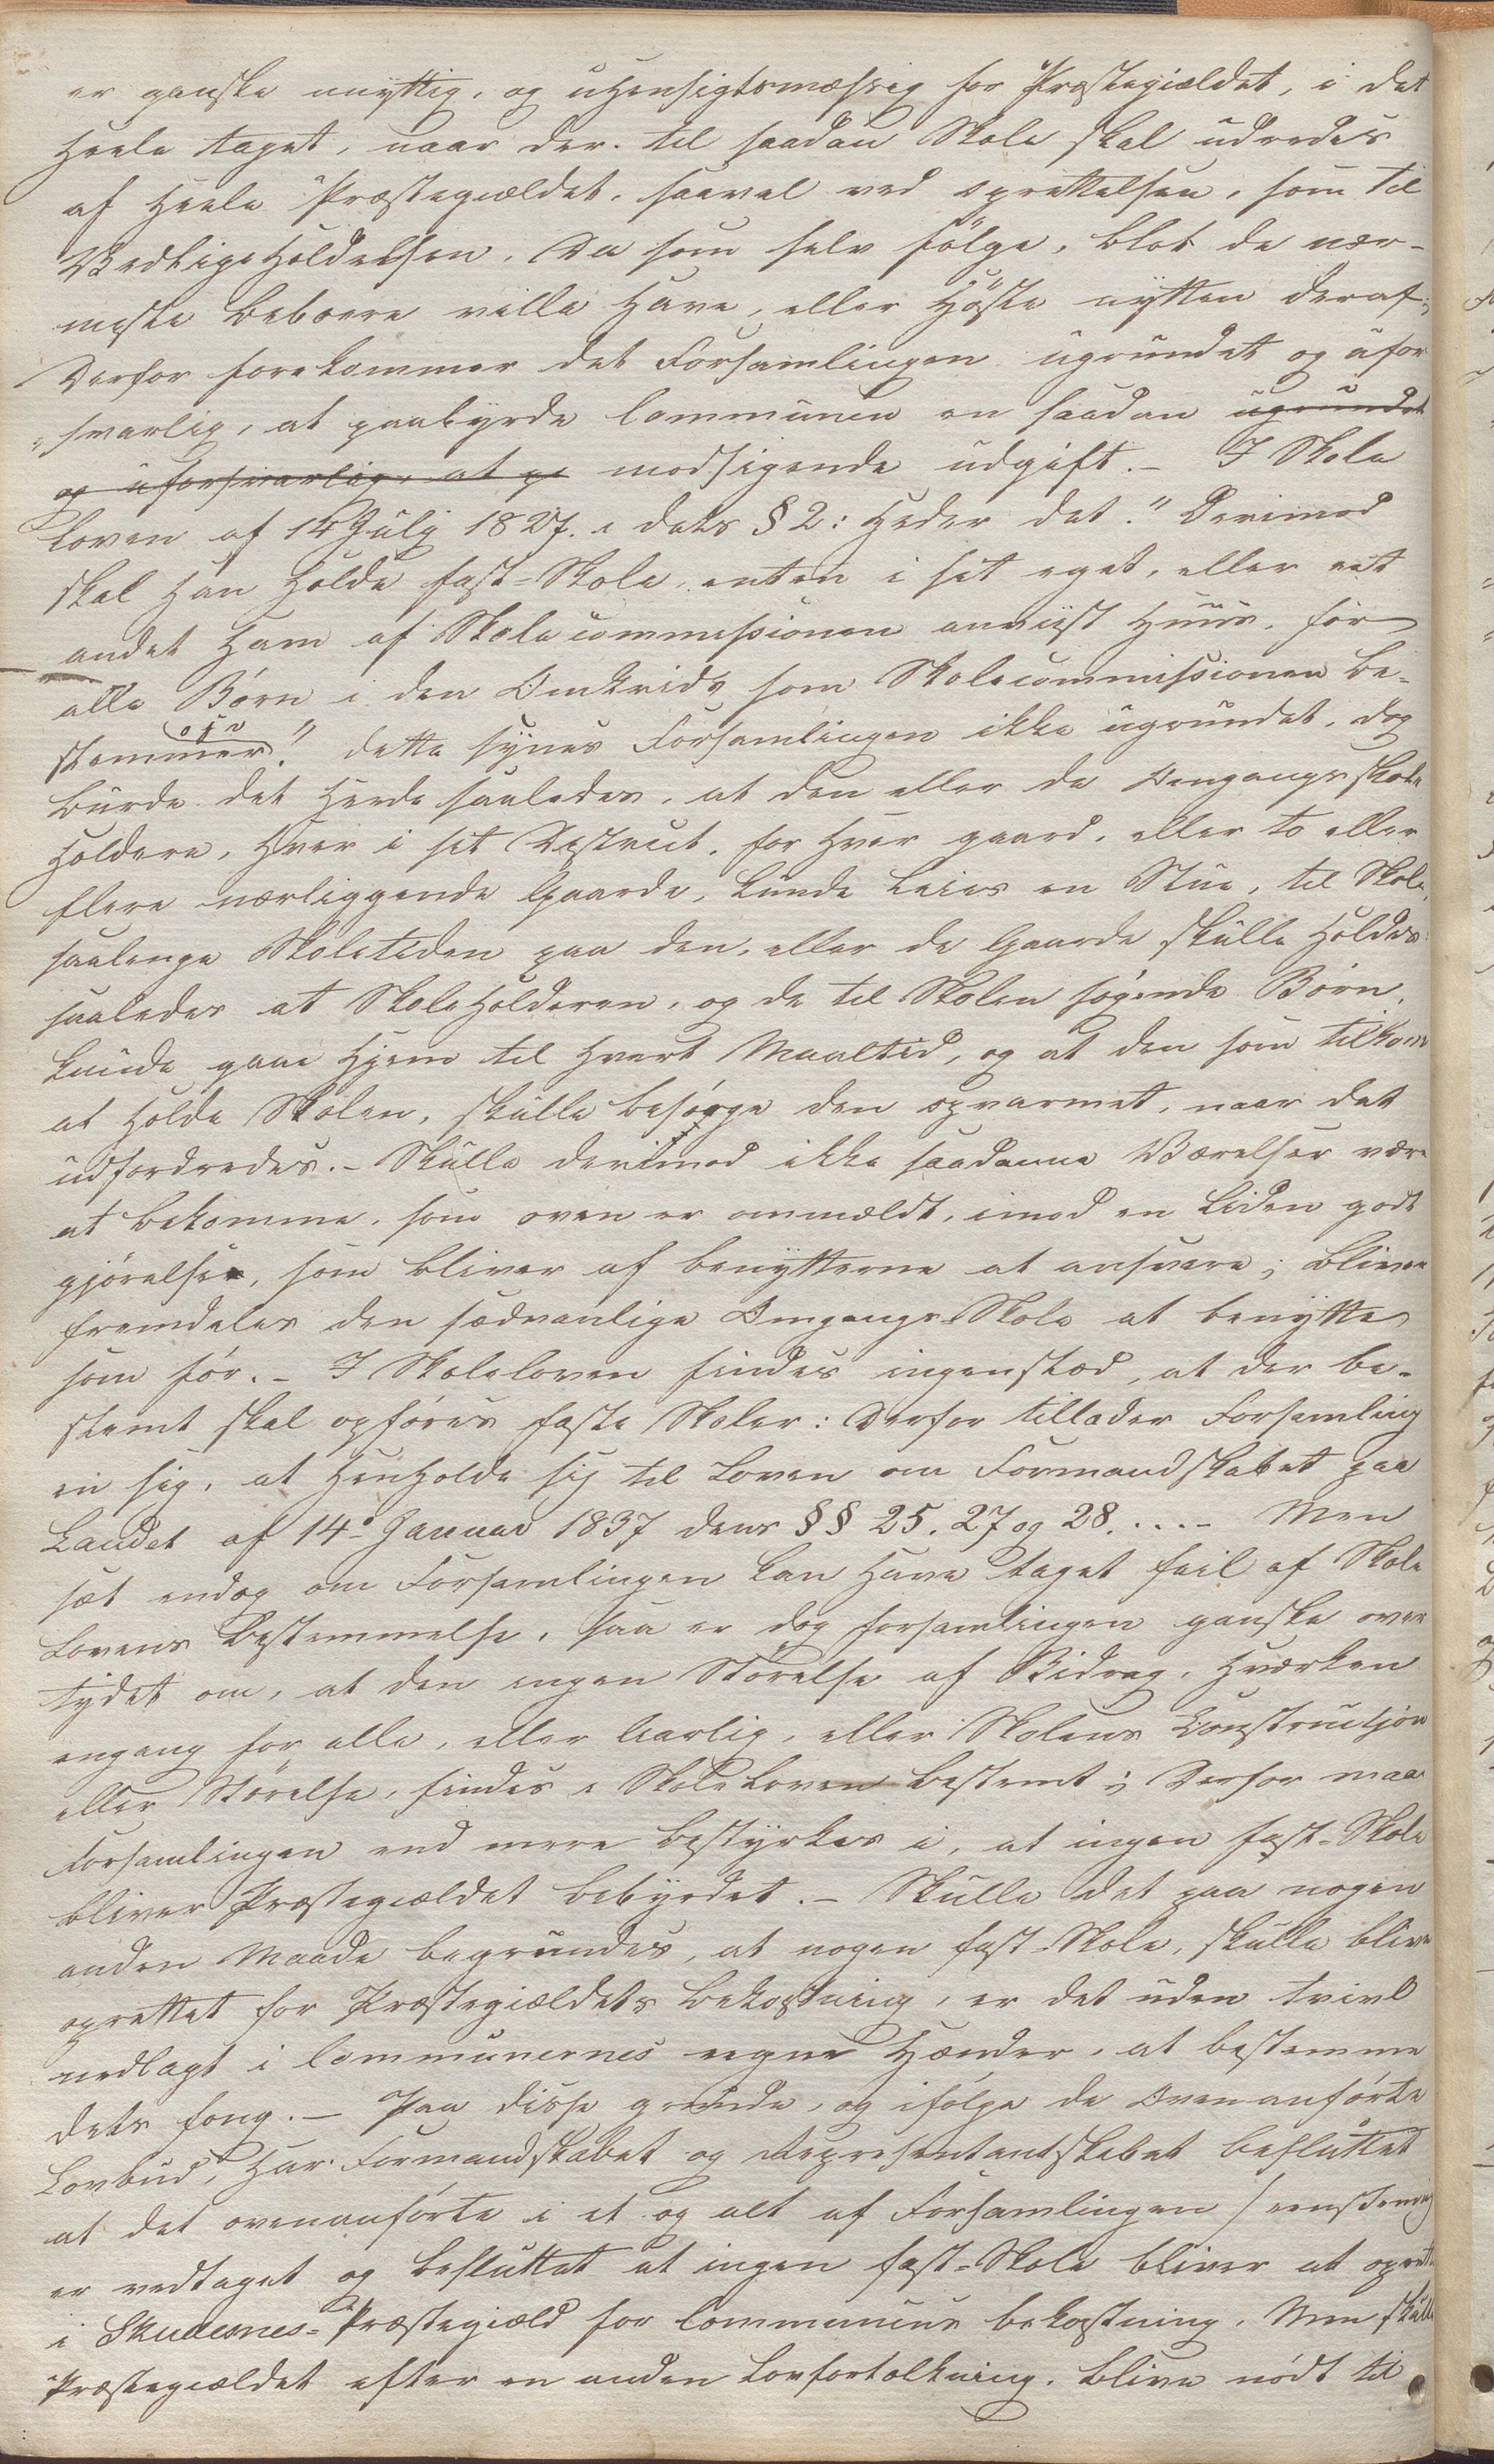 er ganske unyttig, og uhensigtsmæssig for Præstegiældet, i det
Heele taget, naar der. til saadan Skole skal udredes
af Heele Præstegiældet, saavel ved oprettelsen, som til
Vedligeholdelsen. Da som selv følge, blot de nær-
meste beboere ville Have, eller Høste nytten deraf;
Derfor forekommer det Forsamlingen ugrundet og ufor
svarlig, at paabyrde Communen en saadan ugrundet
og uforsvarlig, at pa modsigende udgift. – I Skole
Loven af 14 Julij 1827. i dets § 2: Heder det: "Derimod
skal Han Holde fast-Skole, enten i sit eget, eller eet
andet Ham af Skolecommissionen anviist Huus, for
alle Børn i den Omkrids som Skolecommissionen be-
stemmer osv." dette synes Forsamlingen ikke ugrundet, dog
burde det Hende saaledes, at den eller de Omgangsskole
Holdere, Hver i sit Distrect, for Hver gaard, eller to eller
flere nærliggende Gaarde, kunde Leies en Stue, til Skole,
saalenge Skoletiden paa den, eller de Gaarde skulle Holdes:
saaledes at Skoleholderen, og de til Skolen søgende Børn,
kunde gaae Hjem til Hvert Maaltid, og at den som tilkom
at Holde Skolen, skulle besørge den opvarmet, naar det
udfordredes. – Skulle derimod ikke saadanne Værelser være
at bekomme, som oven er ommældt, imod en Liden godt
gjørelse, som bliver af benytterne at ansvare; bliver
fremdeles den sædvanlige Omgangs-Skole at benytte
som før. – I Skoleloven findes ingensted, at der be-
stemt skal opføres faste Skoler: Derfor tillader Forsamling
en sig, at Henholde sig til Loven om Formandskabet paa
Landet af 14de Januar 1837 dens §§ 25. 27 og 28. ... – Men
sæt endog om Forsamlingen kan Have taget feil af Skole
Lovens Bestemmelse, saa er dog forsamlingen ganske over
tydet om, at den engen Størelse af Bidrag, Hværken
engang for alle, eller Aarlig, eller Skolens Constructjon
eller Størelse, findes i Skole Loven bestemt; Derfor maa
Forsamlingen end mere bestyrkes i, at ingen fast-Skole
bliver Præstegiældet bebyrdet. – Skulle det paa nogen
anden Maade begrundes, at nogen fast Skole, skulle blive
oprettet for Præstegiældets bekostning, er det uden tvivl
nedlagt i Communernes eegne Hænder, at bestemme
dets fong. – Paa disse grunde, og ifølge de Ovenanførte
Lovbud, Har Formandskabet og Representantskabet besluttet
at det ovenanførte i et og alt af Forsamlingen / eenstemig
er vedtaget og besluttet at ingen fast-Skole bliver at oprette
i Skudesnes-Præstegiæld for Communens bekostning. Men skulle
Præstegiældet efter en anden Lovfortolkning, blive nødt til